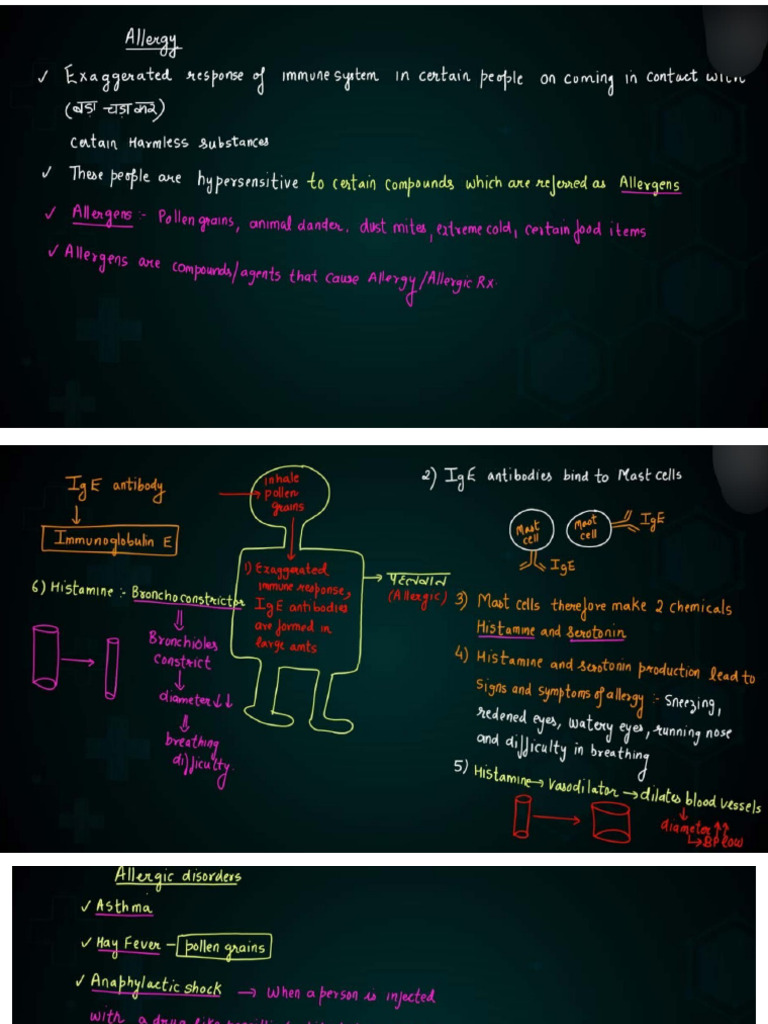 Allergy
✓ Exaggerated response of immune system in certain people on coming in contact with
(बड़ा चड़ा कर)
certain Harmless substances
✓ These people are hypersensitive to certain compounds which are referred as Allergens
✓ Allergens :- Pollen grains, animal dander, dust mites, extreme cold, certain food items
✓ Allergens are compounds/agents that cause Allergy/Allergic Rx.
IgE antibody
Immunoglobulin E
inhale
pollen
grains
1) Exaggerated
immune response,
IgE antibodies
are formed in
large amts
→ पहलवान
(Allergic)
6) Histamine :- Bronchoconstrictor
Bronchioles
constrict
diameter ↓↓
breathing
difficulty.
2) IgE antibodies bind to Mast cells
Mast
cell
IgE
Mast
cell
IgE
3) Mast cells therefore make 2 chemicals
Histamine and serotonin
4) Histamine and serotonin production lead to
signs and symptoms of allergy :- Sneezing,
redened eyes, watery eyes, running nose
and difficulty in breathing
5) Histamine → Vasodilator → dilates blood vessels
diameter ↑↑
↳ BP low
Allergic disorders
✓ Asthma
✓ Hay Fever – pollen grains
✓ Anaphylactic shock → When a person is injected
with a drug like